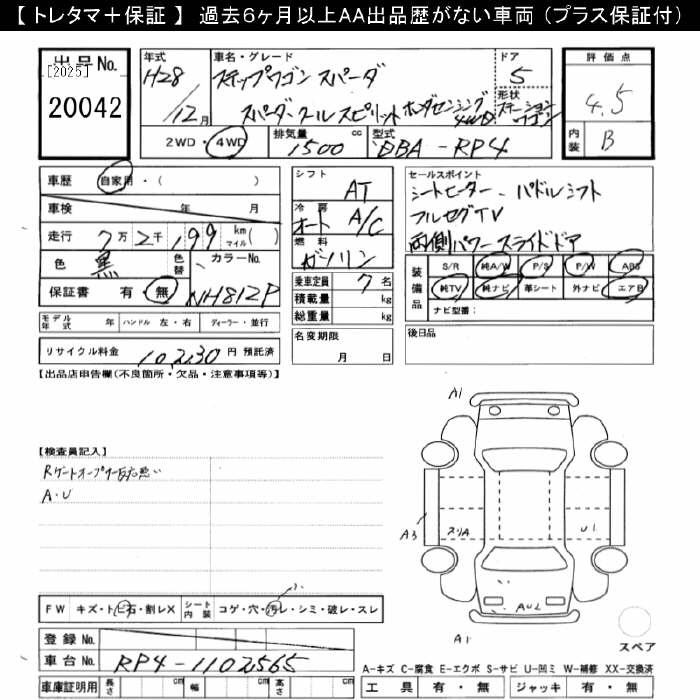 【トレタマ＋保証】 過去６ヶ月以上ＡＡ出品歴がない車両（プラス保証付）
出品No.
[2025]
20042
年式 H28 / 12月
車名・グレード ドア
ステップワゴン スパーダ 5
スパーダ・クールスピリット ホンダセンシング 4WD
形状 ステーションワゴン
評価点
4.5
内装 B
2WD・4WD 排気量 1500 cc 型式 DBA-RP4
車歴 自家用・( )
車検 年 月
走行 7万2千199 km マイル( )
色 黒 色替 カラーNo.
保証書 有 無 NH812P
シフト AT
冷房 オート A/C
燃料 ガソリン
乗車定員 7名
積載量 kg
総重量 kg
セールスポイント
シートヒーター、パドルシフト
フルセグTV
両側パワースライドドア
装備品
S/R 純A/W P/S P/W ABS
純TV 純ナビ 革シート 外ナビ エアB
ナビ型番：
モデル年式 年 ハンドル 左・右 ディーラー・並行
名変期限 月 日
後日品
リサイクル料金 10,230 円 預託済
【出品店申告欄(不良箇所・欠品・注意事項等)】
【検査員記入】
A・U
A1
A3
スリA
U1
AU2
A1
FW キズ・トビ石・割レX シート内装 コゲ・穴・汚レ・シミ・破レ・スレ
スペア
登録No.
車台No. RP4-1102565
A-キズ C-腐食 E-エクボ S-サビ U-凹ミ W-補修 XX-交換済
車庫証明用 長さ cm 幅 cm 高さ cm
工具 有・無 ジャッキ 有・無